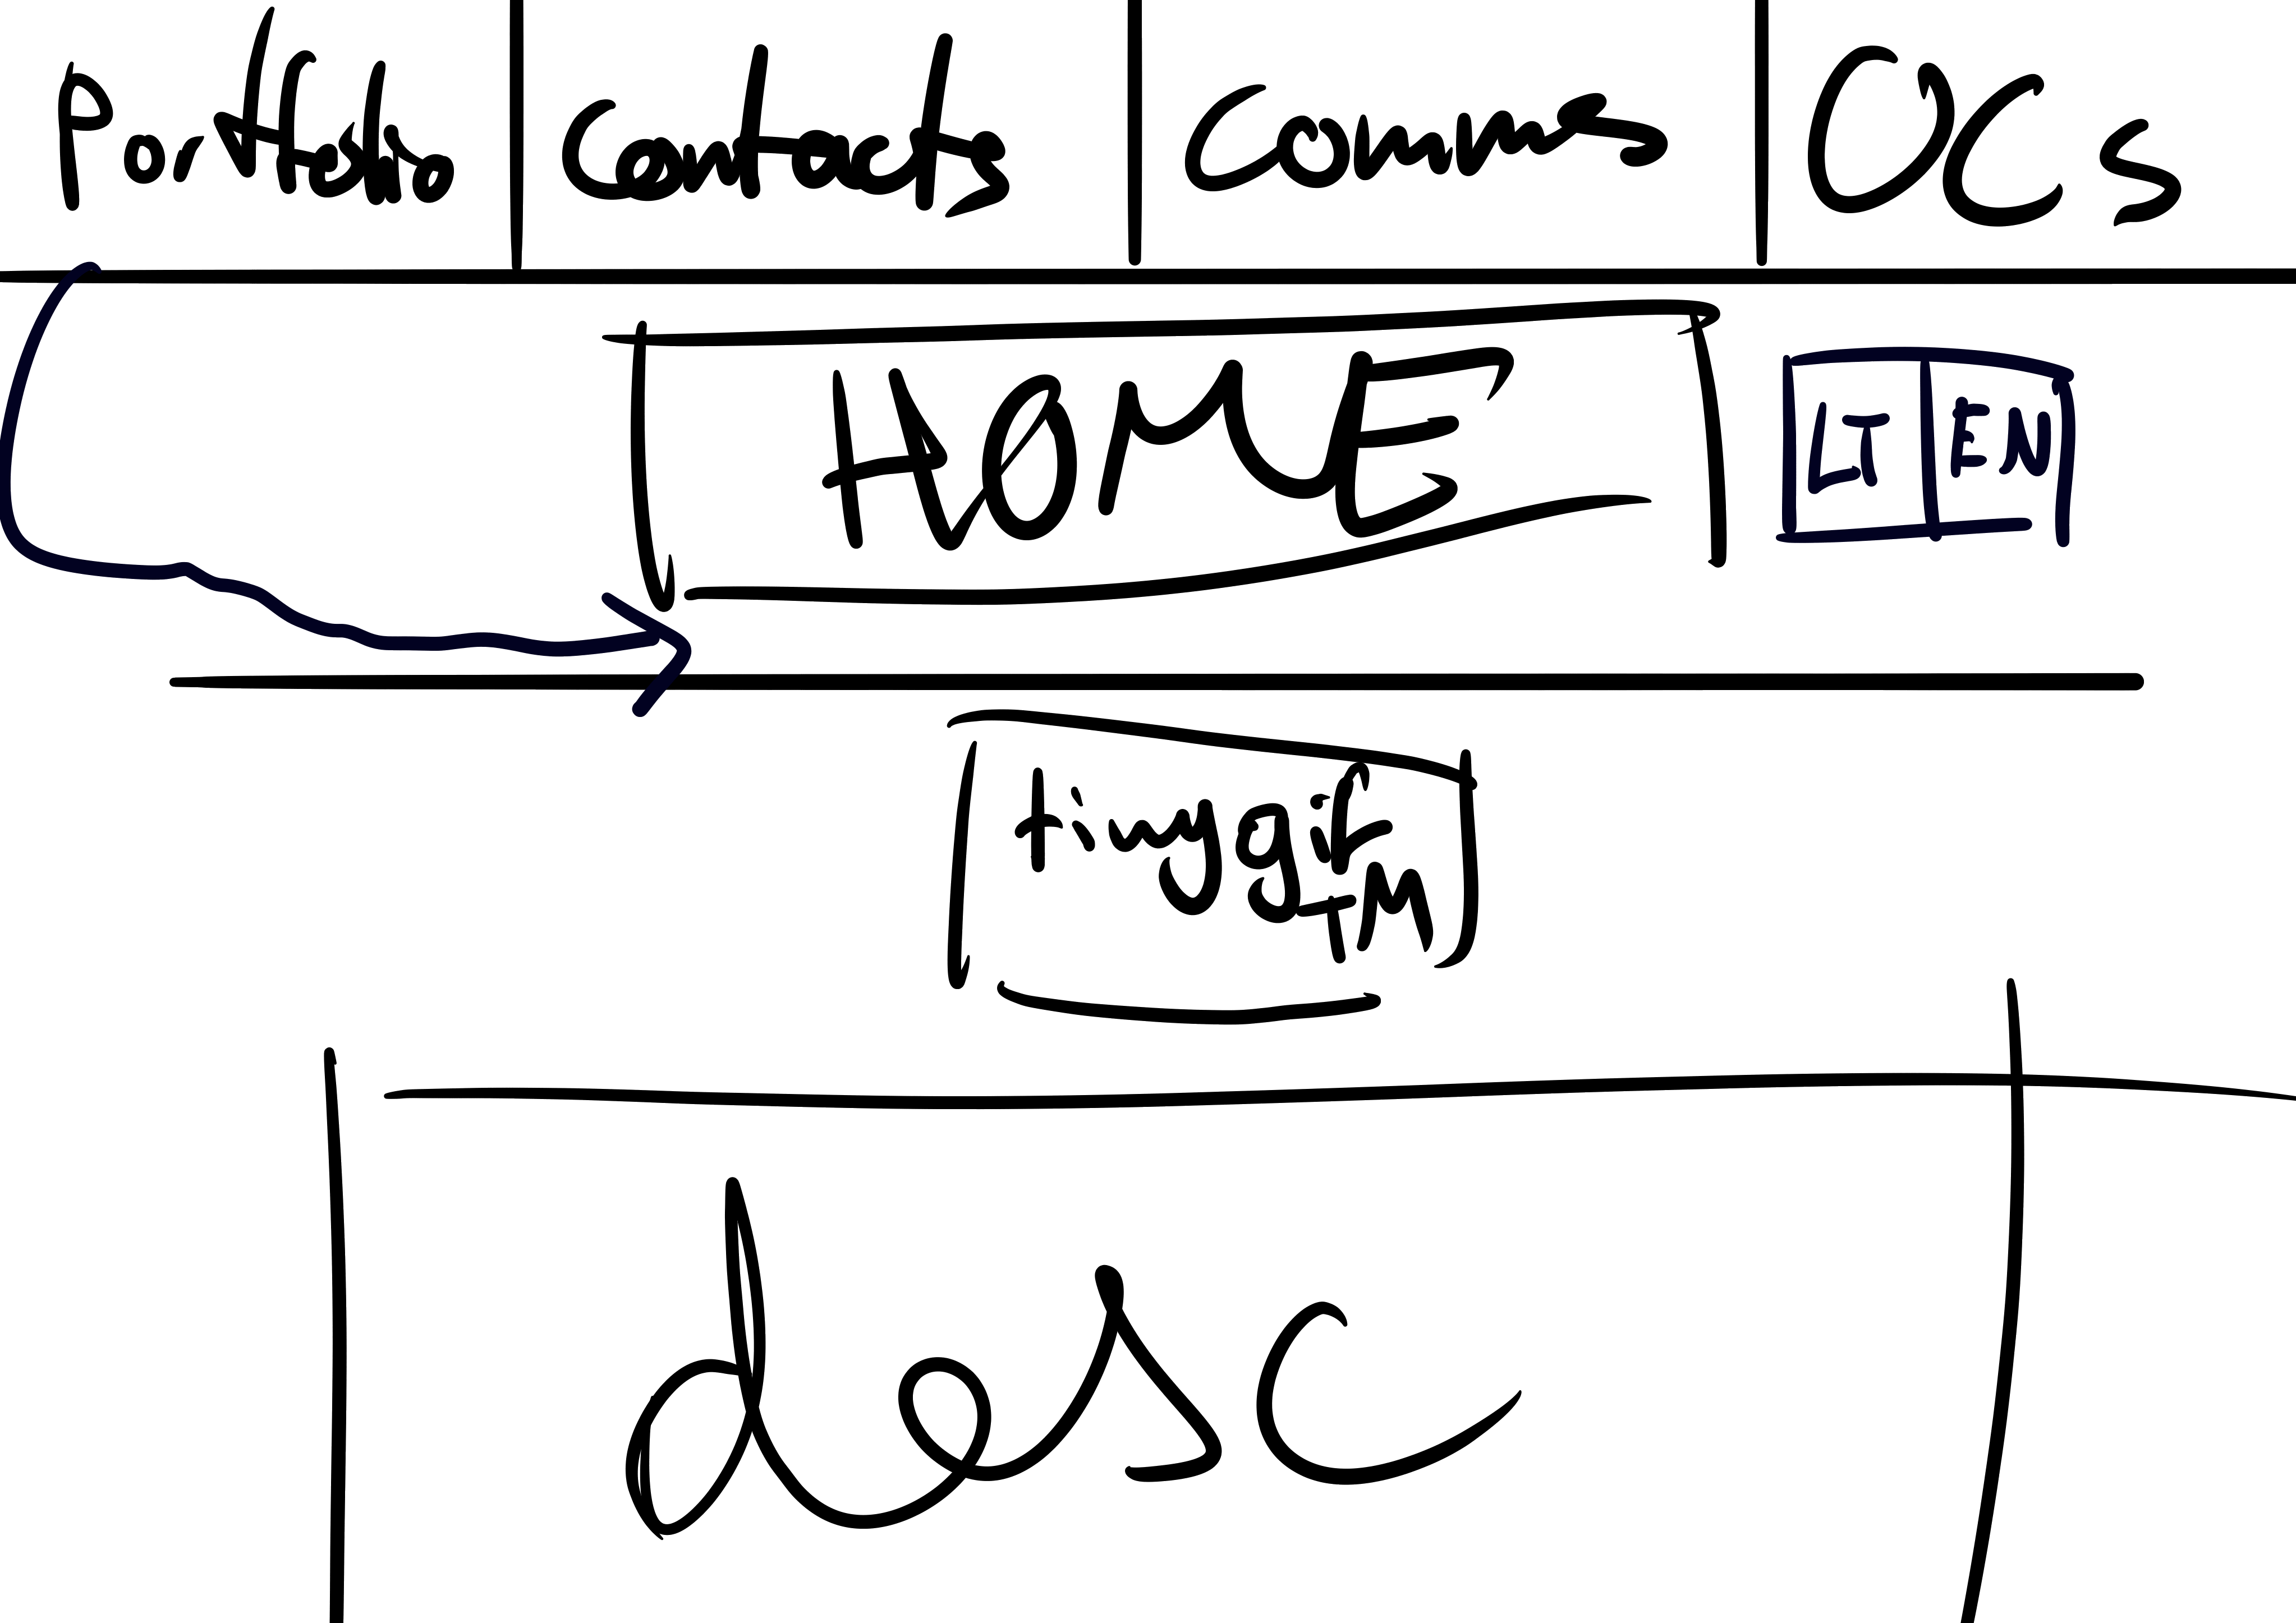 Portfolio contacts comms OCs
HOME
LT EN
tinygif
TM
desc